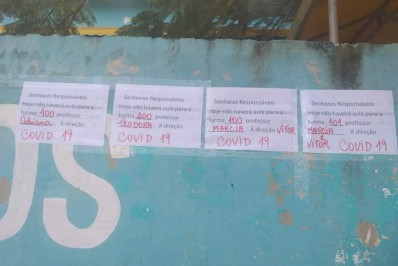 Senhores Responsáveis
Hoje não haverá aula para a
turma 400 professor
Adriana A direção
COVID 19
Senhores Responsáveis
Hoje não haverá aula para a
turma 200 professor
TEODORA A direção
COVID 19
Senhores Responsáveis
Hoje não haverá aula para a
turma 100 professor
MARCIA A direção VITOR
COVID 19
Senhores Responsáveis
Hoje não haverá aula para a
turma 101 professor
MARCIA A direção
E VITOR COVID 19
OS